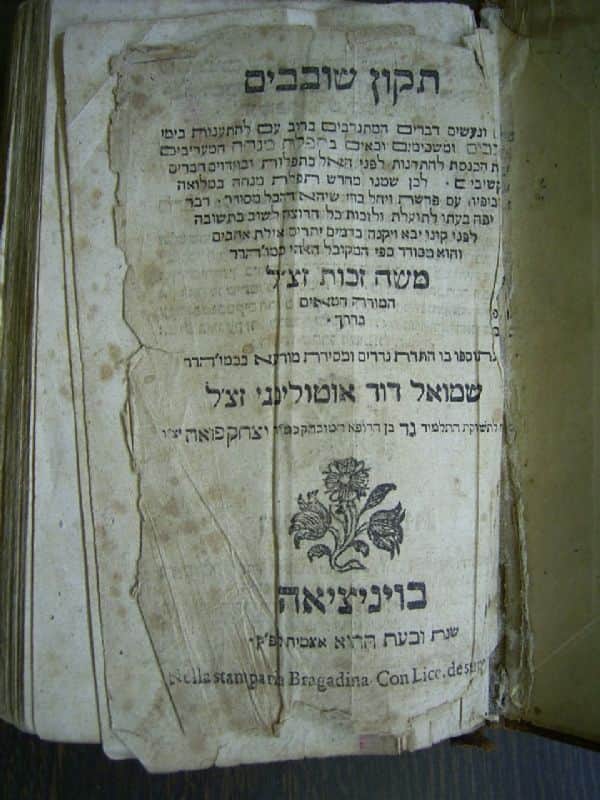 תקון שובבים
ונעשים דברים המתנדבים ברוב עם להתענות בימי
ומשכימים ובאים בתפלת מנחה המעריבים
הכנסת להתודות לפני האל בתפלות ובוידוים דברים
לכן שמנו מחדש תפלת מנחה במלואה
עם פרשת ויחל בחי שיהא הכל מסודר דבר
יפה בעתו לתועלת ולזכות כל הרוצה לשוב בתשובה
לפני קונו יבא ויקנה בדמים יתרים אילת אהבים
והוא מסודר כפי המקובל האלהי כמוהרר
משה זכות זצ״ל
בדרך
נתוספו בו התרת נדרים ומסירת מודעא מכמוהרר
שמואל דוד אוטולינגי זצ״ל
התלמיד גד בן הרופא יצחק פואה יצ״ו
בויניציאה
שנת ובעת ההוא אצמיח לפ״ק
Nella stamparia Bragadina. Con Lice. de sup